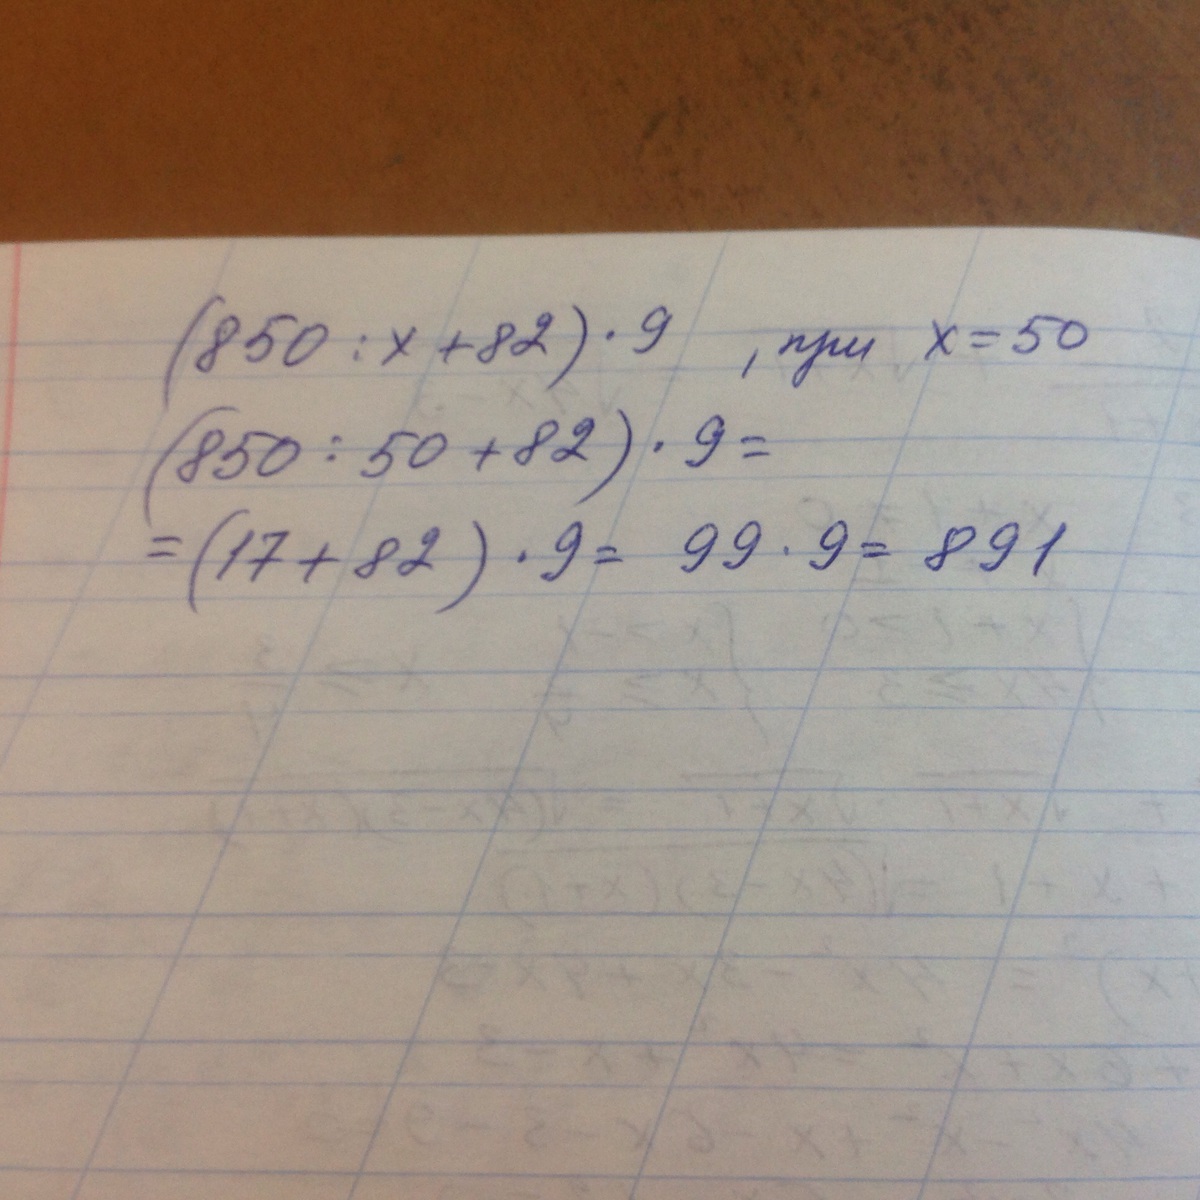 (850 : x + 82) · 9 , при x = 50
(850 : 50 + 82) · 9 =
= (17 + 82) · 9 = 99 · 9 = 891